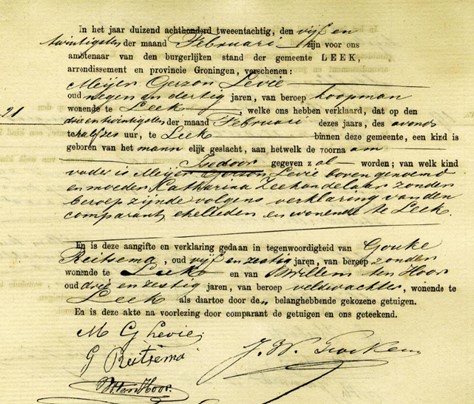 In het jaar duizend achthonderd tweeentachtig, den vijf en
twintigsten der maand Februari zijn voor ons
ambtenaar van den burgerlijken stand der gemeente LEEK,
arrondissement en provincie Groningen, verschenen:
Meijer Gerzon Levie
oud negen en dertig jaren, van beroep koopman
wonende te Leek, welke ons hebben verklaard, dat op den
21
drieentwintigsten der maand Februari dezes jaars, des avonds
te half zes uur, te Leek binnen deze gemeente, een kind is
geboren van het mannelijk geslacht, aan hetwelk de voornaam
Isidoor gegeven zal worden; van welk kind
vader is Meijer Gerzon Levie bovengenoemd
en moeder Catharina Zeehandelaar zonder
beroep zijnde volgens verklaring van den
comparant, echtelieden en wonende te Leek.
En is deze aangifte en verklaring gedaan in tegenwoordigheid van Gouke
Reitsema, oud vijf en zestig jaren, van beroep zonder
wonende te Leek en van Willem ten Hoor
oud drie en zestig jaren, van beroep veldwachter, wonende te
Leek als daartoe door den belanghebbende gekozene getuigen.
En is deze akte na voorlezing door comparant de getuigen en ons geteekend.
M G Levie
G Reitsema
W ten Hoor